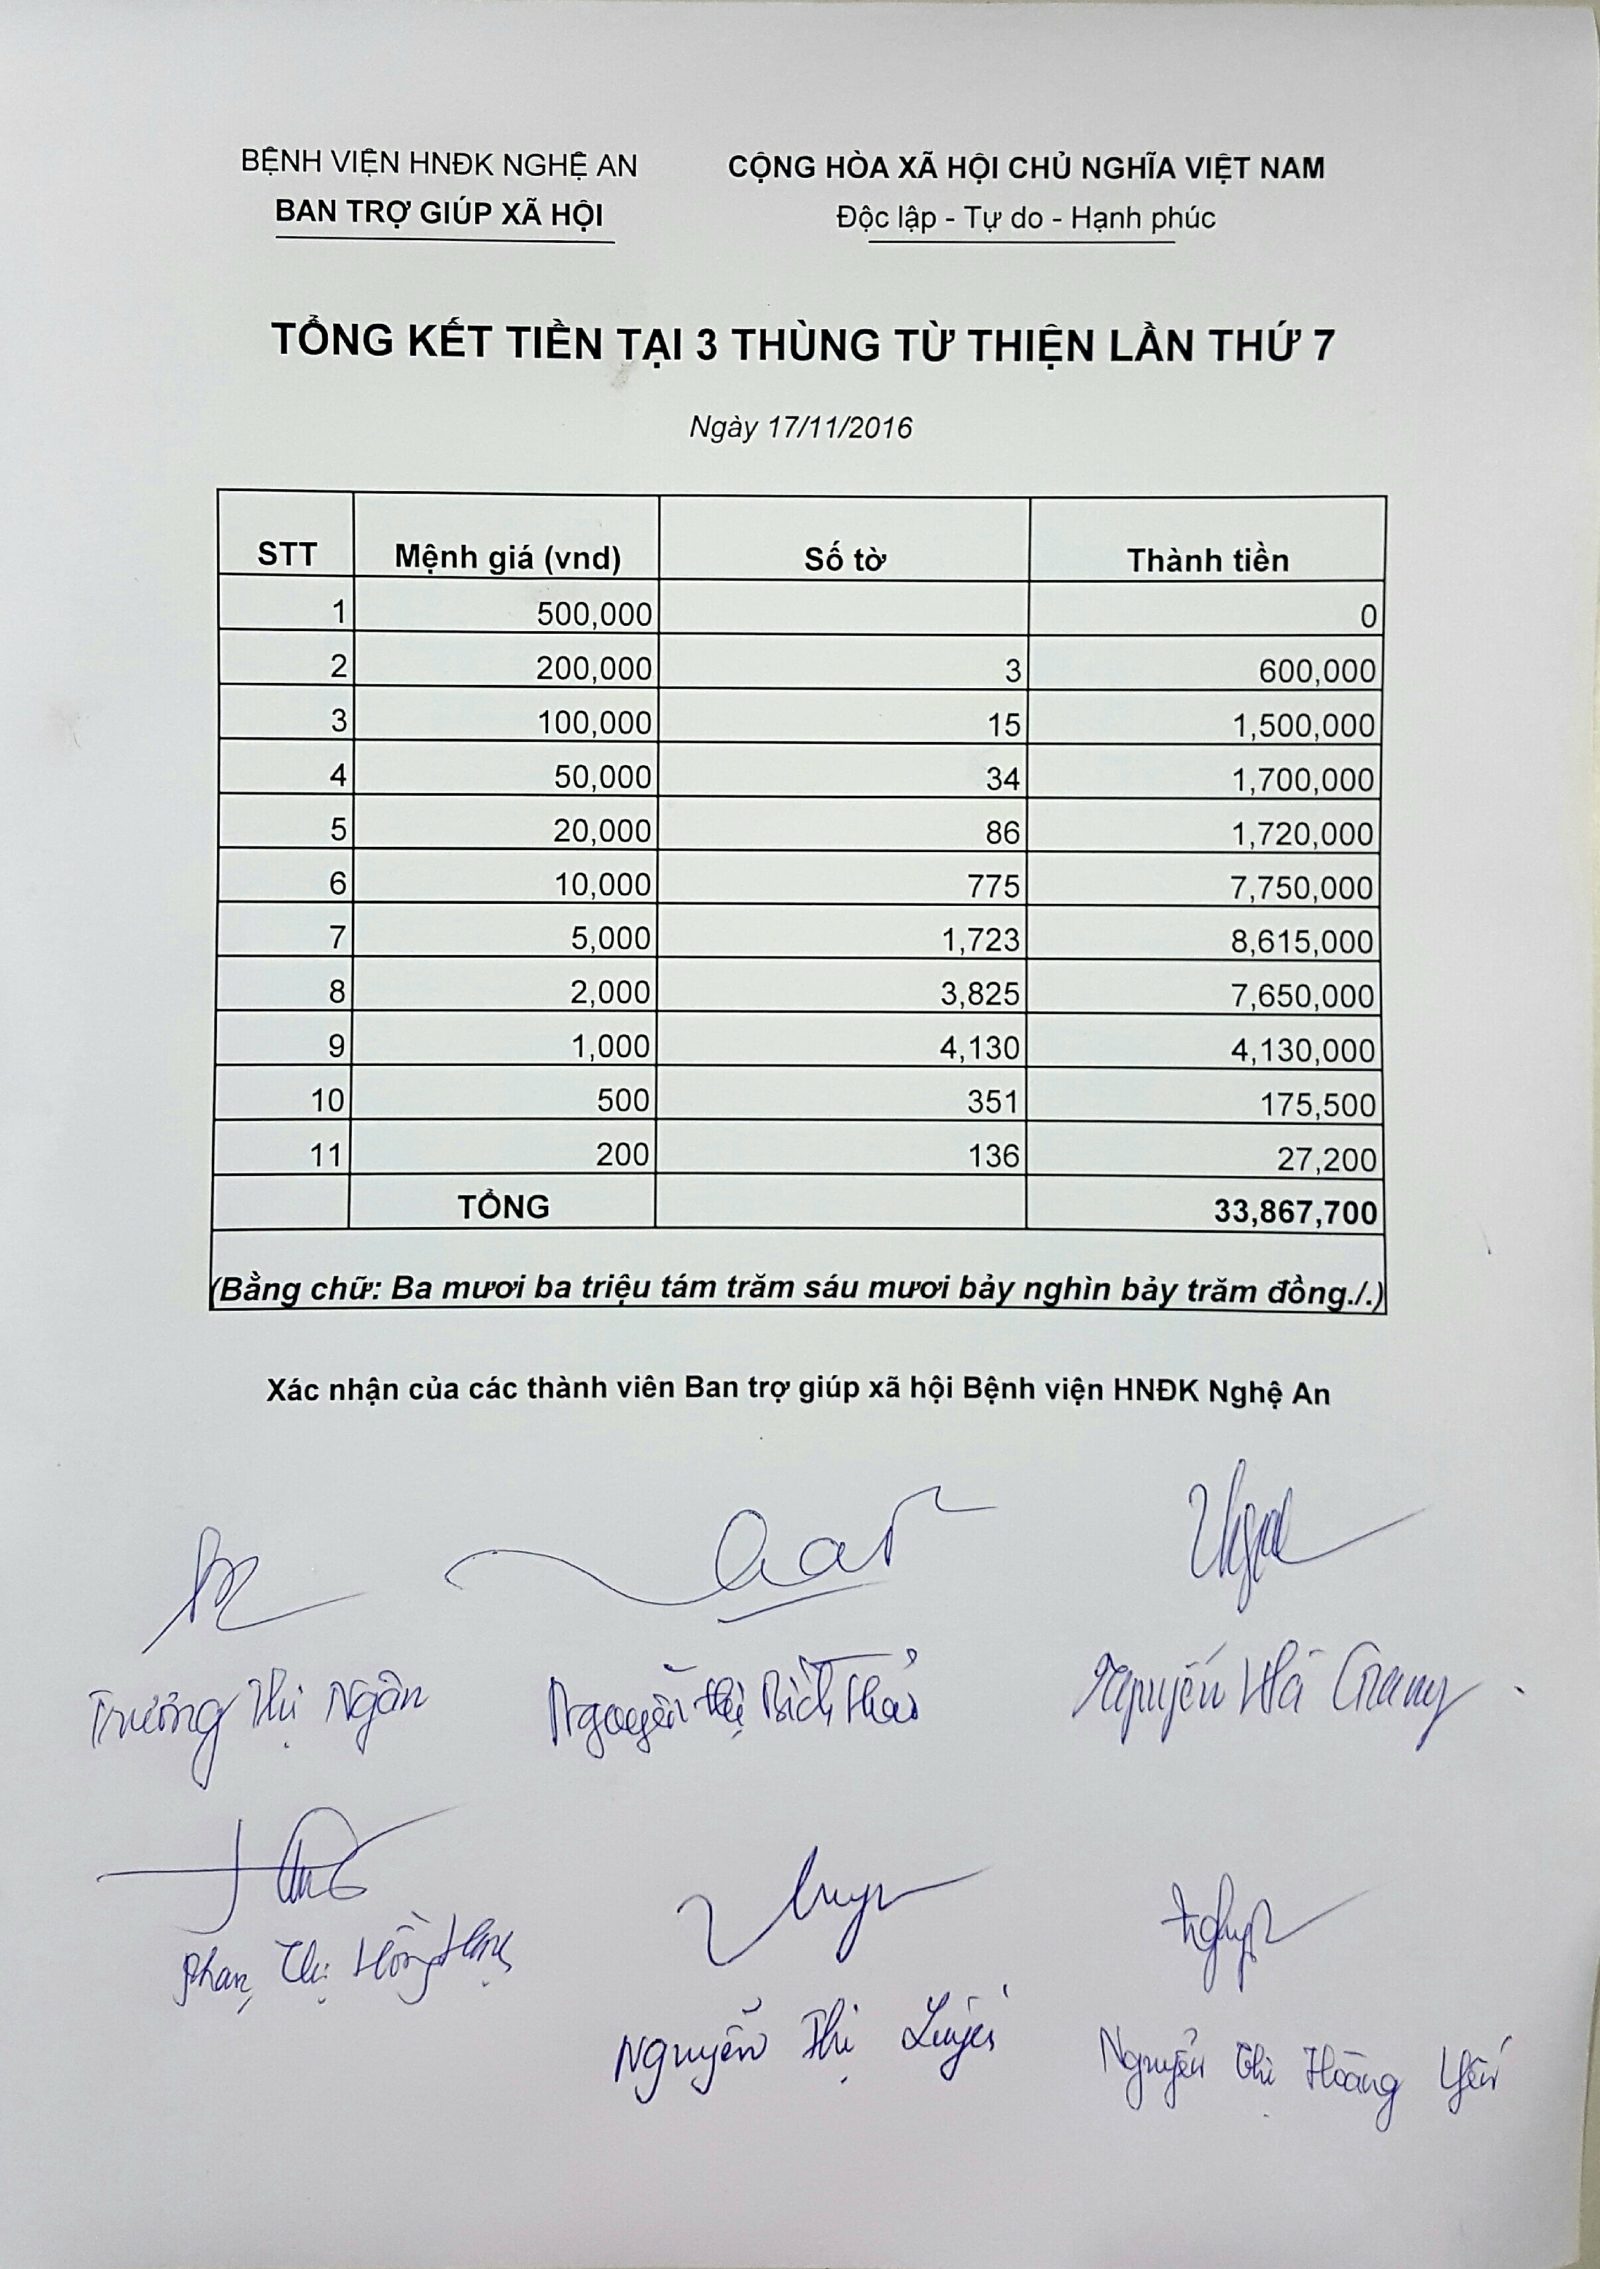 BỆNH VIỆN HNĐK NGHỆ AN
BAN TRỢ GIÚP XÃ HỘI
CỘNG HÒA XÃ HỘI CHỦ NGHĨA VIỆT NAM
Độc lập - Tự do - Hạnh phúc
TỔNG KẾT TIỀN TẠI 3 THÙNG TỪ THIỆN LẦN THỨ 7
Ngày 17/11/2016
STT Mệnh giá (vnd) Số tờ Thành tiền
1 500,000 0
2 200,000 3 600,000
3 100,000 15 1,500,000
4 50,000 34 1,700,000
5 20,000 86 1,720,000
6 10,000 775 7,750,000
7 5,000 1,723 8,615,000
8 2,000 3,825 7,650,000
9 1,000 4,130 4,130,000
10 500 351 175,500
11 200 136 27,200
TỔNG 33,867,700
(Bằng chữ: Ba mươi ba triệu tám trăm sáu mươi bảy nghìn bảy trăm đồng./.)
Xác nhận của các thành viên Ban trợ giúp xã hội Bệnh viện HNĐK Nghệ An
Trương Thị Ngân Nguyễn Thị Bích Thảo Nguyễn Hà Giang
Phan Thị Hồng Nguyễn Thị Nguyễn Thị Hoàng Yến